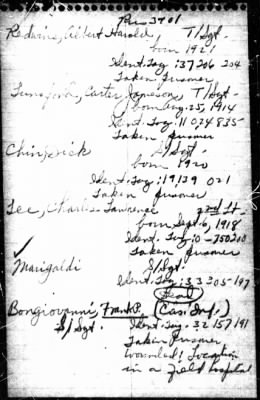 Redwine, Albert Harold, T/Sgt -
born 1921
Ident. Tag: 37206 204
Taken Prisoner
Carter Jameson, T/Sgt -
born Aug. 25, 1914
Ident. Tag: 11024835
Taken prisoner
S/Sgt -
born 1920
Ident. Tag: 19139 021
Taken prisoner
Lee, Charles Lawrence 2nd Lt -
born Sept. 6, 1918
Ident. Tag: 0-750210
Taken prisoner
✓
Marigoldi S/Sgt.
Ident. Tag: 33305-197
Dead
Bongiovanni, Frank P. (Cas. Inf.)
S/Sgt. Ident. Tag. 32157191
Taken Prisoner
Wounded! Location
in a field hospital